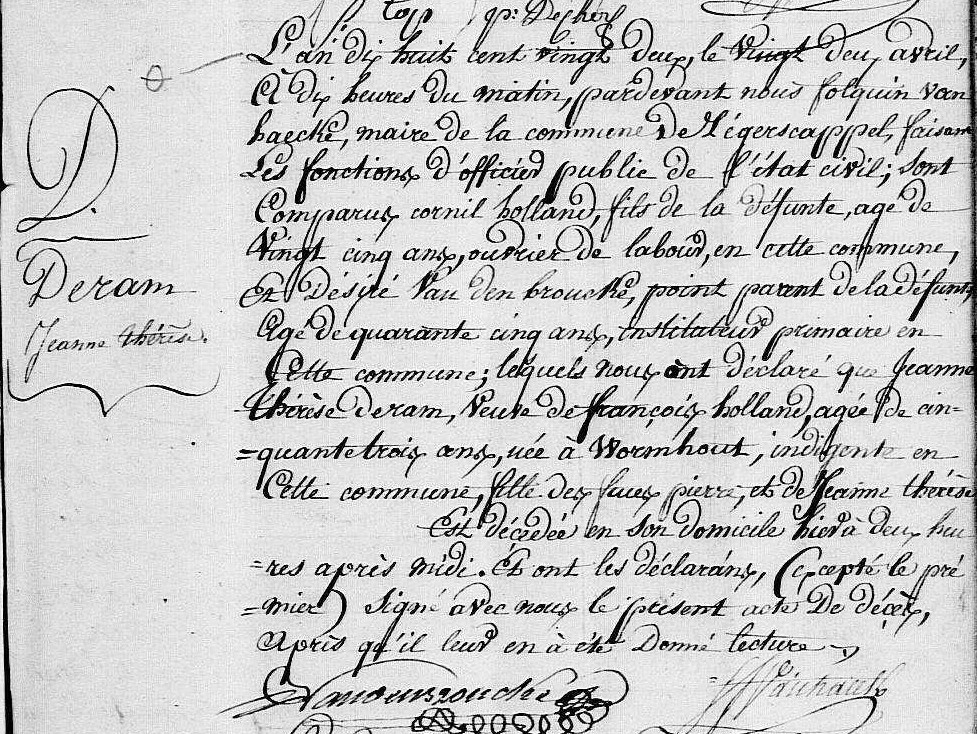 L'an dix huit cent vingt deux, le vingt deux avril,
à dix heures du matin, pardevant nous folquin van
haecke, maire de la commune de Zégerscappel, faisant
Les fonctions d'officier public de l'état civil; sont
Comparus cornil holland, fils de la défunte, age de
Vingt cinq ans, ouvrier de labour, en cette commune,
et Désiré Van den broucke, point parent de la défunte
Age de quarante cinq ans, instituteur primaire en
Cette commune; lesquels nous ont déclaré que Jeanne
thérèse deram, veuve de françois holland, agée de cin=
=quante trois ans, née à Wormhout, indigente en
Cette commune, fille des feues pierre, et de Jeanne thérèse
Est décédée en son domicile hier à deux heu
=res après midi. Et ont les déclarans, (excepté le pré
=mier) signé avec nous le présent acte De décès,
Après qu'il leur en à été Donné lecture
D.
Deram
Jeanne thérèse.